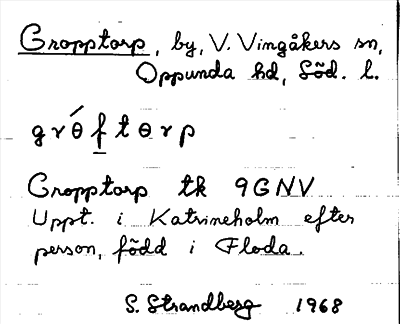 Gropptorp, by, V. Vingåkers sn,
Oppunda hd, Söd. l.
grө́ftөrp
Gropptorp tk 9GNV
Uppt. i Katrineholm efter
person, född i Floda.
S. Strandberg 1968